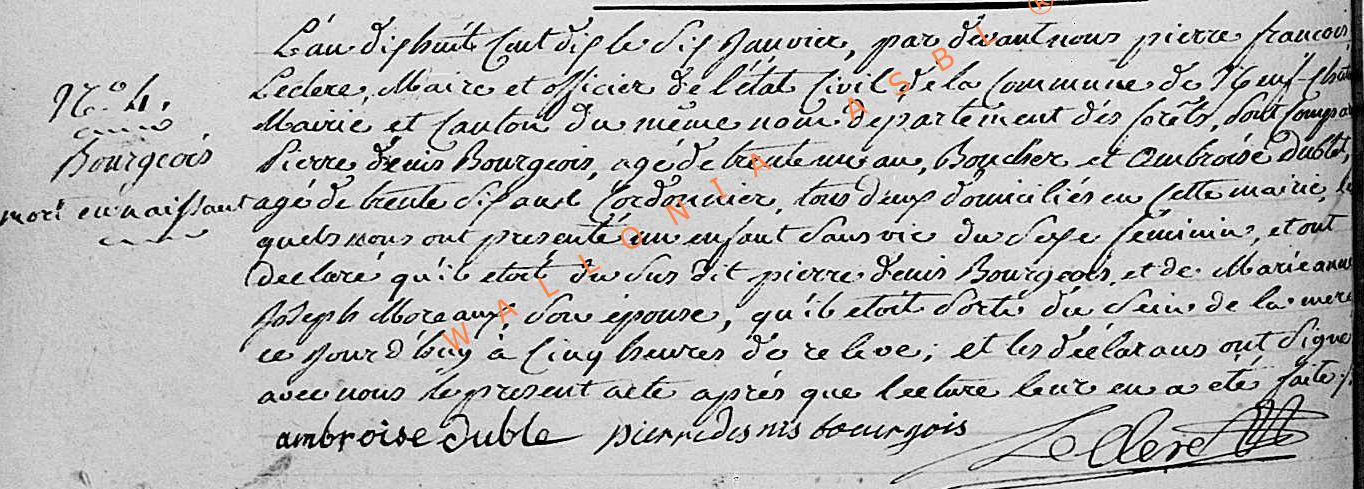 L'an dix huit Cent dix le Six Janvier, par devant nous pierre francois
Leclere, Maire et officier de l'état Civil de la Commune de Neuf-Chât
Mairie et Canton du même nom département des forêts, sont comparu
Pierre denis Bourgeois, agé de trente un an, Boucher et Ambroise dublet,
agé de trente Six ans Cordonnier, tous deux domiciliés en cette mairie, les
quels nous ont présenté un enfant Sans vie du Sexe féminin, et ont
declaré qu'il etoit du Sus dit pierre denis Bourgeois, et de Marie anne
Joseph Moreaux, Son épouse, qu'il etoit Sorti du Sein de la mere
ce jour d'huy à Cinq heures de relevé; et les déclarans ont Signé
avec nous le present acte après que lecture leur en a été faite ./.
N.º 4.
Bourgeois
mort en naissant
ambroise duble pierre des nis bourgois LeClere
WALLONIA ASBL ®